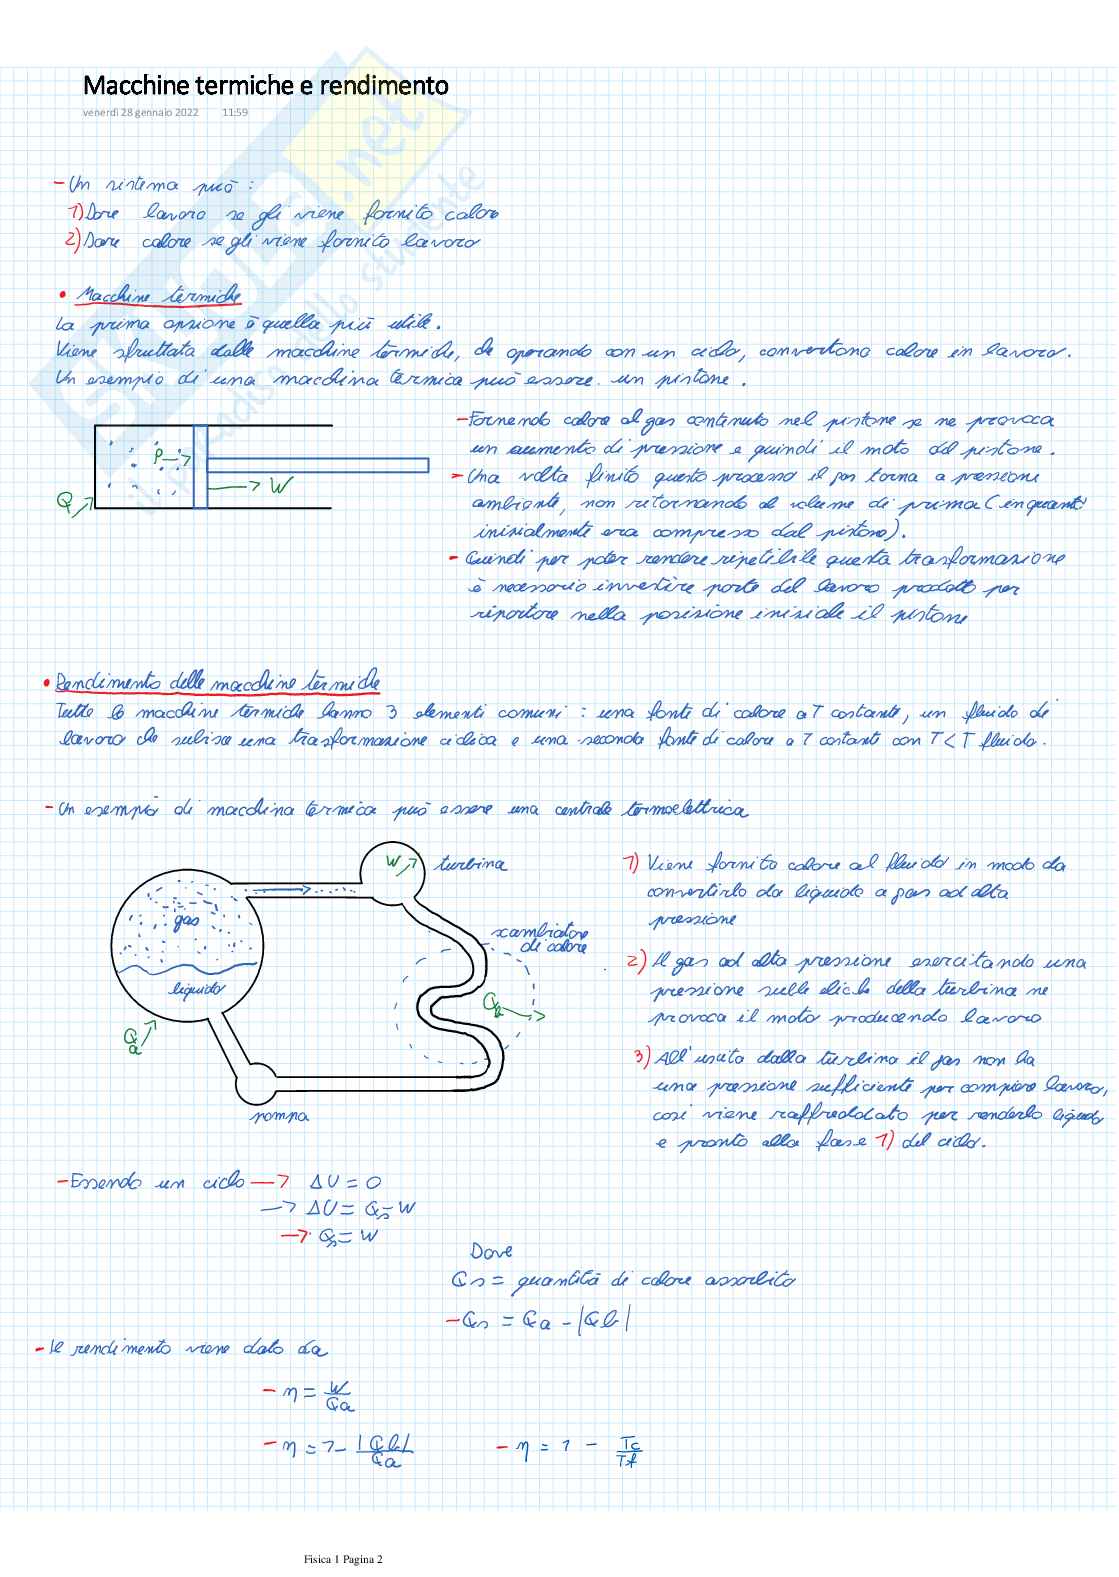 Macchine termiche e rendimento
venerdì 28 gennaio 2022 11:59
- Un sistema può :
1) Dare lavoro se gli viene fornito calore
2) Dare calore se gli viene fornito lavoro
• Macchine termiche
La prima opzione è quella più utile.
Viene sfruttata dalle macchine termiche, che operando con un ciclo, convertono calore in lavoro.
Un esempio di una macchina termica può essere un pistone.
- Fornendo calore al gas contenuto nel pistone se ne provoca
un aumento di pressione e quindi il moto del pistone.
- Una volta finito questo processo il gas torna a pressione
ambiente, non ritornando al volume di prima (in quanto
inizialmente era compresso dal pistone).
- Quindi per poter rendere ripetibile questa trasformazione
è necessario investire parte del lavoro prodotto per
riportare nella posizione iniziale il pistone
P
W
Q
• Rendimento delle macchine termiche
Tutte le macchine termiche hanno 3 elementi comuni : una fonte di calore a T costante, un fluido di
lavoro che subisce una trasformazione ciclica e una seconda fonte di calore a T costante con T < T fluido.
- Un esempio di macchina termica può essere una centrale termoelettrica
W
turbina
gas
liquido
scambiatore
di calore
Qb
Qa
pompa
1) Viene fornito calore al fluido in modo da
convertirlo da liquido a gas ad alta
pressione
2) Il gas ad alta pressione esercitando una
pressione sulle eliche della turbina ne
provoca il moto producendo lavoro
3) All'uscita dalla turbina il gas non ha
una pressione sufficiente per compiere lavoro,
così viene raffreddato per renderlo liquido
e pronto alla fase 1) del ciclo.
- Essendo un ciclo → ΔU = 0
→ ΔU = Qs - W
→ Qs = W
Dove
Qs = quantità di calore assorbito
- Qs = Qa - |Qb|
- Il rendimento viene dato da
- η = W/Qa
- η = 1 - |Qb|/Qa - η = 1 - Tc/Tf
Fisica 1 Pagina 2